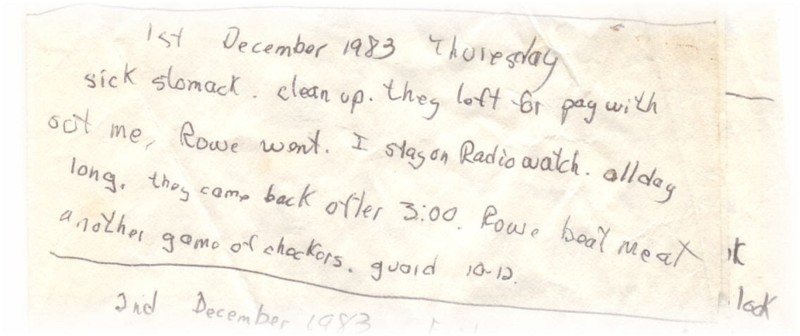 1st December 1983 Thuresday
sick stomack. clean up. they left for pay with
out me, Rowe went. I stay on Radio watch. all day
long. they came back after 3:00. Rowe beat me at
another game of checkers. guard 10-12.
2nd December 1983
k
look